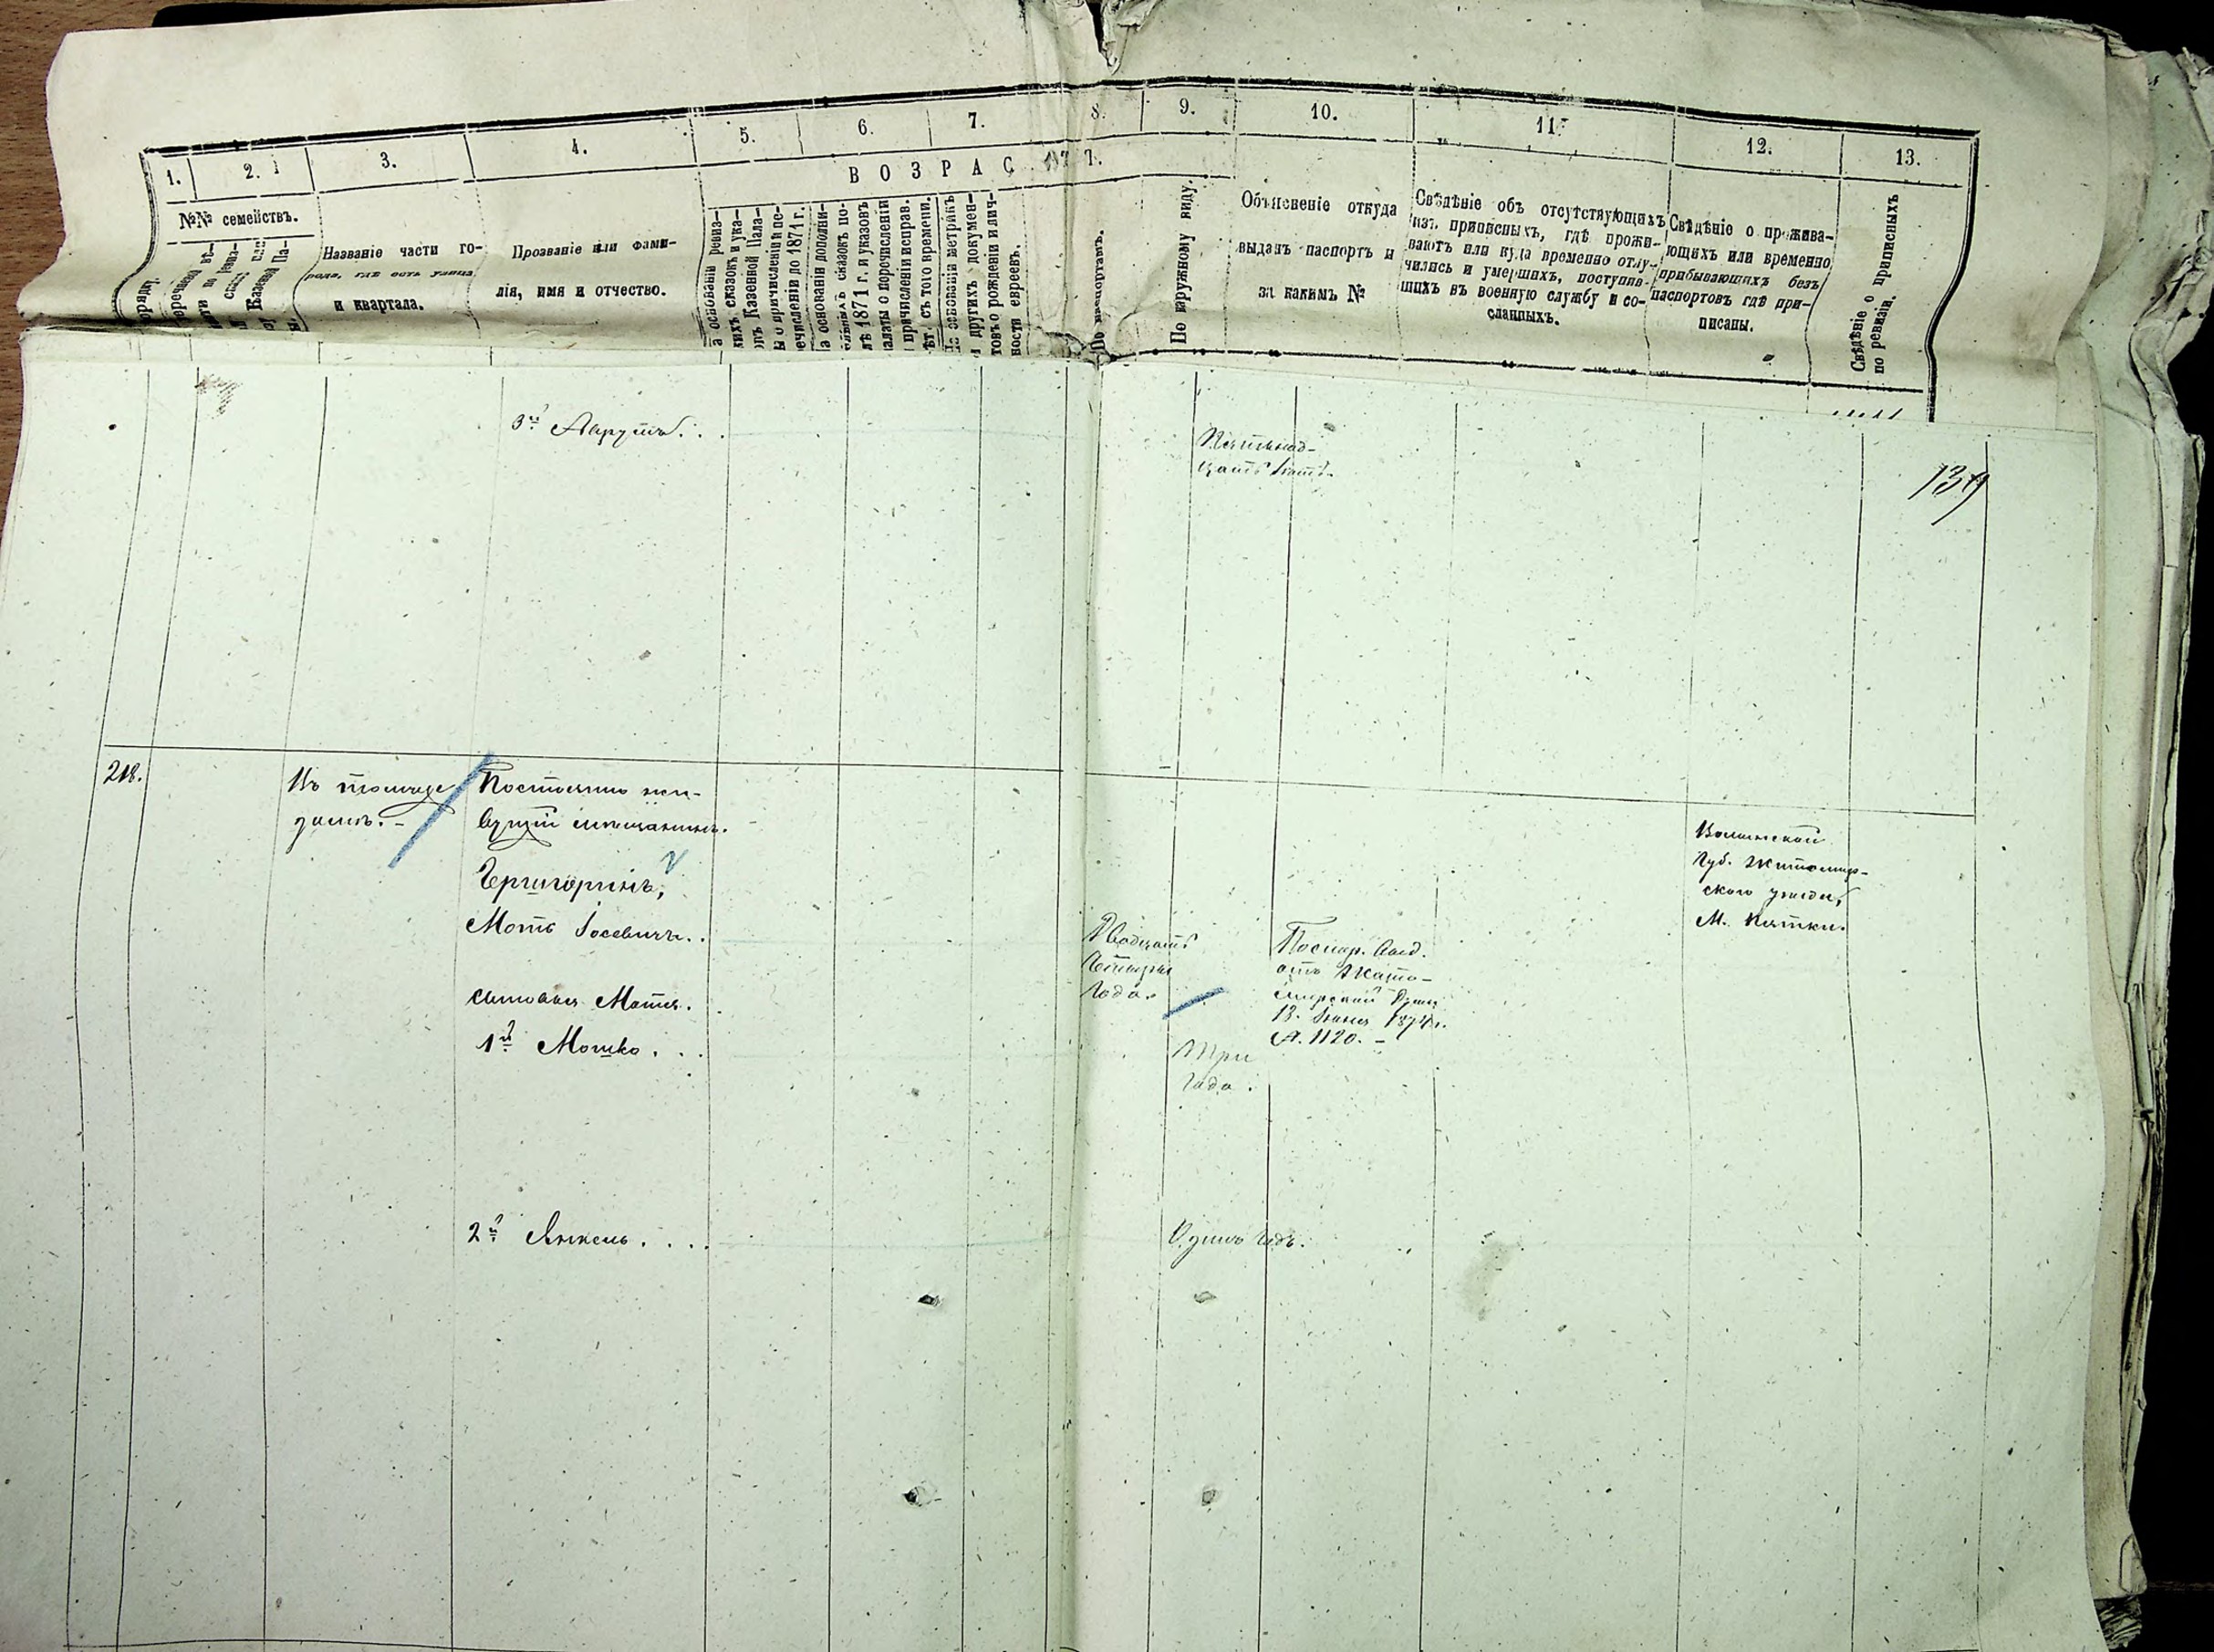 1. 2. 3. 4. 5. 6. 7. 8. 9. 10. 11. 12. 13.
В О З Р А С Т.
№№ семействъ.
Названіе части го-
рода, гдѣ есть улица
и квартала.
Прозваніе или фами-
лія, имя и отчество.
а основаніи ревиз-
кихъ сказокъ и ука-
Казенной Пала-
ы о причисленіи и пе-
речисленіи до 1871 г.
а основаніи дополни-
сказокъ по-
лѣ 1871 г. и указовъ
алаты о перечисленіи
причисленіи исправ.
съ того времени.
На основаніи метрикъ
и другихъ докумен-
товъ о рожденіи и лич-
ности евреевъ.
По паспортамъ.
По наружному виду.
Объясненіе откуда
выданъ паспортъ и
за какимъ №
Свѣдѣніе объ отсутствующихъ
изъ приписныхъ, гдѣ прожи-
ваютъ или куда временно отлу-
чились и умершихъ, поступив-
шихъ въ военную службу и со-
сланныхъ.
Свѣдѣніе о прожива-
ющихъ или временно
прибывающихъ безъ
паспортовъ гдѣ при-
писаны.
Свѣдѣніе о приписныхъ
по ревизіи.
3й
Пятнад-
цать лѣтъ.
139
218.
Постоянно жи-
вущій мѣщанинъ.
Мотя Іосевичъ..
Двадцать
четыре
года.
Паспор. выд.
отъ Жито-
мирской Думы
13. Іюня 1874 г.
№ 1120. –
Волынской
Губ. Житомир-
скаго уѣзда,
М. Пятки.
сыновья Мотя.
1й Мошко . . .
Три
года .
2й Янкель . . . .
Одинъ годъ.